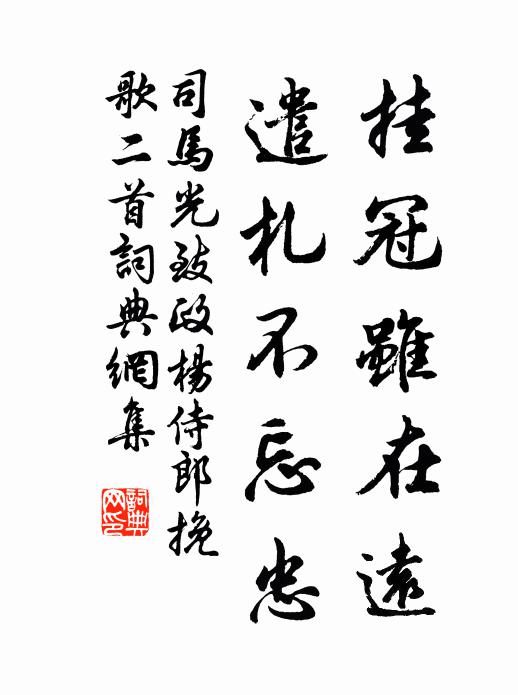 挂冠雖在遠
遣札不忘忠
司馬光致政楊侍郎挽
歌二首詞典網集
詞典
网印